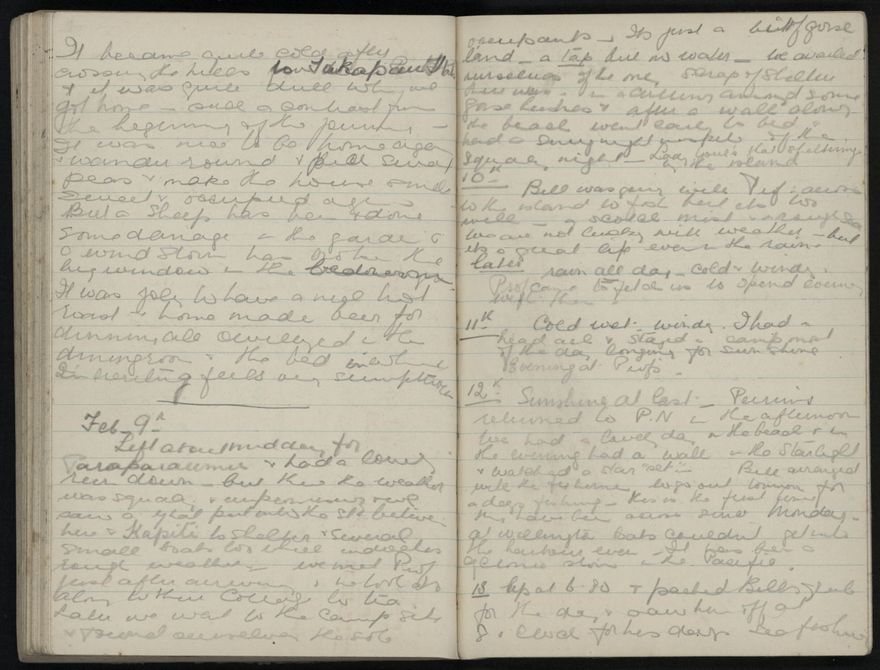 It became quite cold after
crossing the hills from Takapau
& it was quite dull when we
got home – such a contrast from
the beginning of the journey –
It was nice to be home again
& wander round & pick sweet
peas & make the house smell
sweet & occupied again
But a sheep has been & done
some damage in the garden &
a wind storm has broken the
big window in the bedroom.
It was jolly to have a nice hot
roast & home made beer for
dinner, all civilized in the
diningroom & the bed in which
I'm writing feels very sumptuous
Feb. 9th
Left about midday for
Paraparaumu & had a lovely
run down – but then the weather
was squally & unpromising & we
saw a yacht put into the
here & Kapiti to shelter & several
small boats too which indicates
rough weather – we met Prof
just after arriving & he took us
along to their Cottage to tea
Later we went to the Camp site
& found ourselves the sole
occupants – Its just a bit of gorse
land – a tap but no water – we availed
ourselves of the one, scrap of shelter
there was – in a cutting among some
gorse bushes & after a walk along
the beach went early to bed &
had a night in spite of the
squally night –
in the island
10th
Bill was going with Prof across
to the island to fish but its too
wild – a scotch mist & rough sea
We are not lucky with weather – but
its a great life even in the rain
later
rain all day – cold & windy.
Prof came to fetch us to spend evening
with them
11th Cold wet windy. I had a
head ache & stayed in camp most
of the day longing for sunshine
Evening at Profs.
12th Sunshine at last –
returned to P.N in the afternoon
We had a lovely day on the beach & in
the evening had a walk in the Starlight
& watched a star "set" – Bill arranged
with the fishermen to go out tomorrow for
a days fishing – this is the first time
they have been across since Monday –
at Wellington boats couldn't get into
the harbour even – It has been a
cyclonic storm in the Pacific.
13 Up at 6.30 & packed Bills grub
for the day & saw him off at
8. o'clock for his days sea fishing